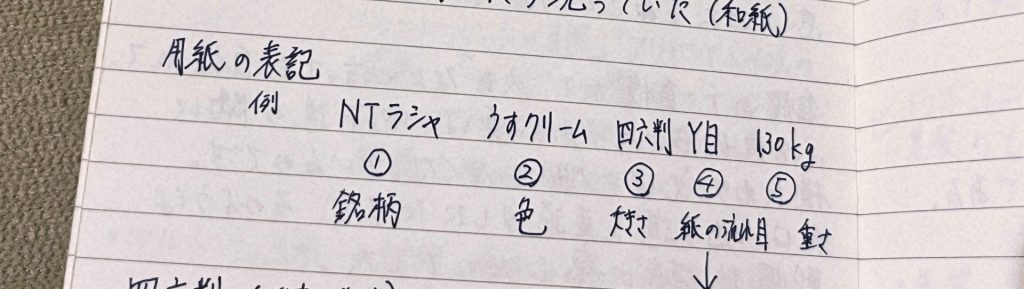 っていた(和紙)
用紙の表記
例 NTラシャ うすクリーム 四六判 Y目 130kg
① ② ③ ④ ⑤
銘柄 色 大きさ 紙の流れ目 重さ
↓
四六判